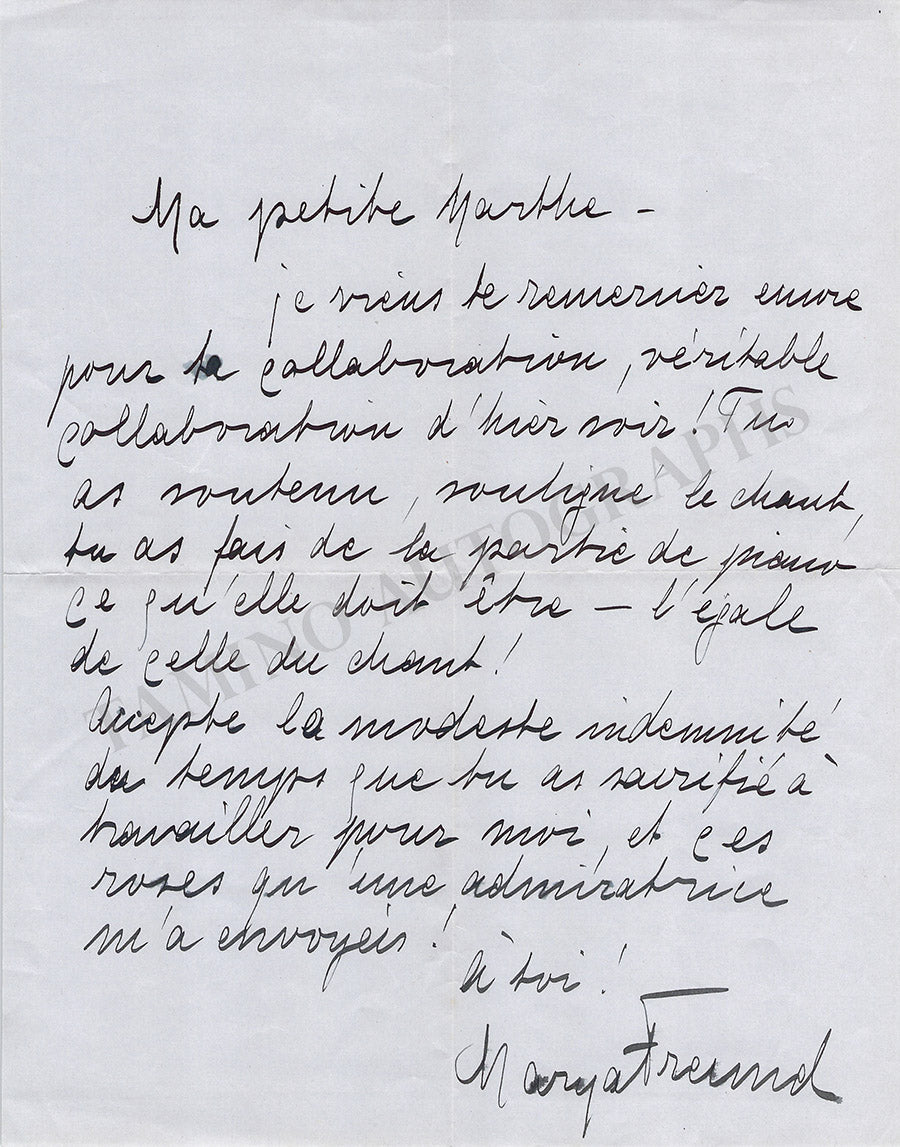 Ma petite Marthe -
je viens te remercier encore
pour ta collaboration, véritable
collaboration d'hier soir! Tu
as soutenu, souligné le chant,
tu as fais de la partie de piano
ce qu'elle doit être — l'égale
de celle du chant!
Accepte la modeste indemnité
du temps que tu as sacrifié à
travailler pour moi, et ces
roses qu'une admiratrice
m'a envoyéis!
à toi!
Marya Freund
TAMINO AUTOGRAPHS